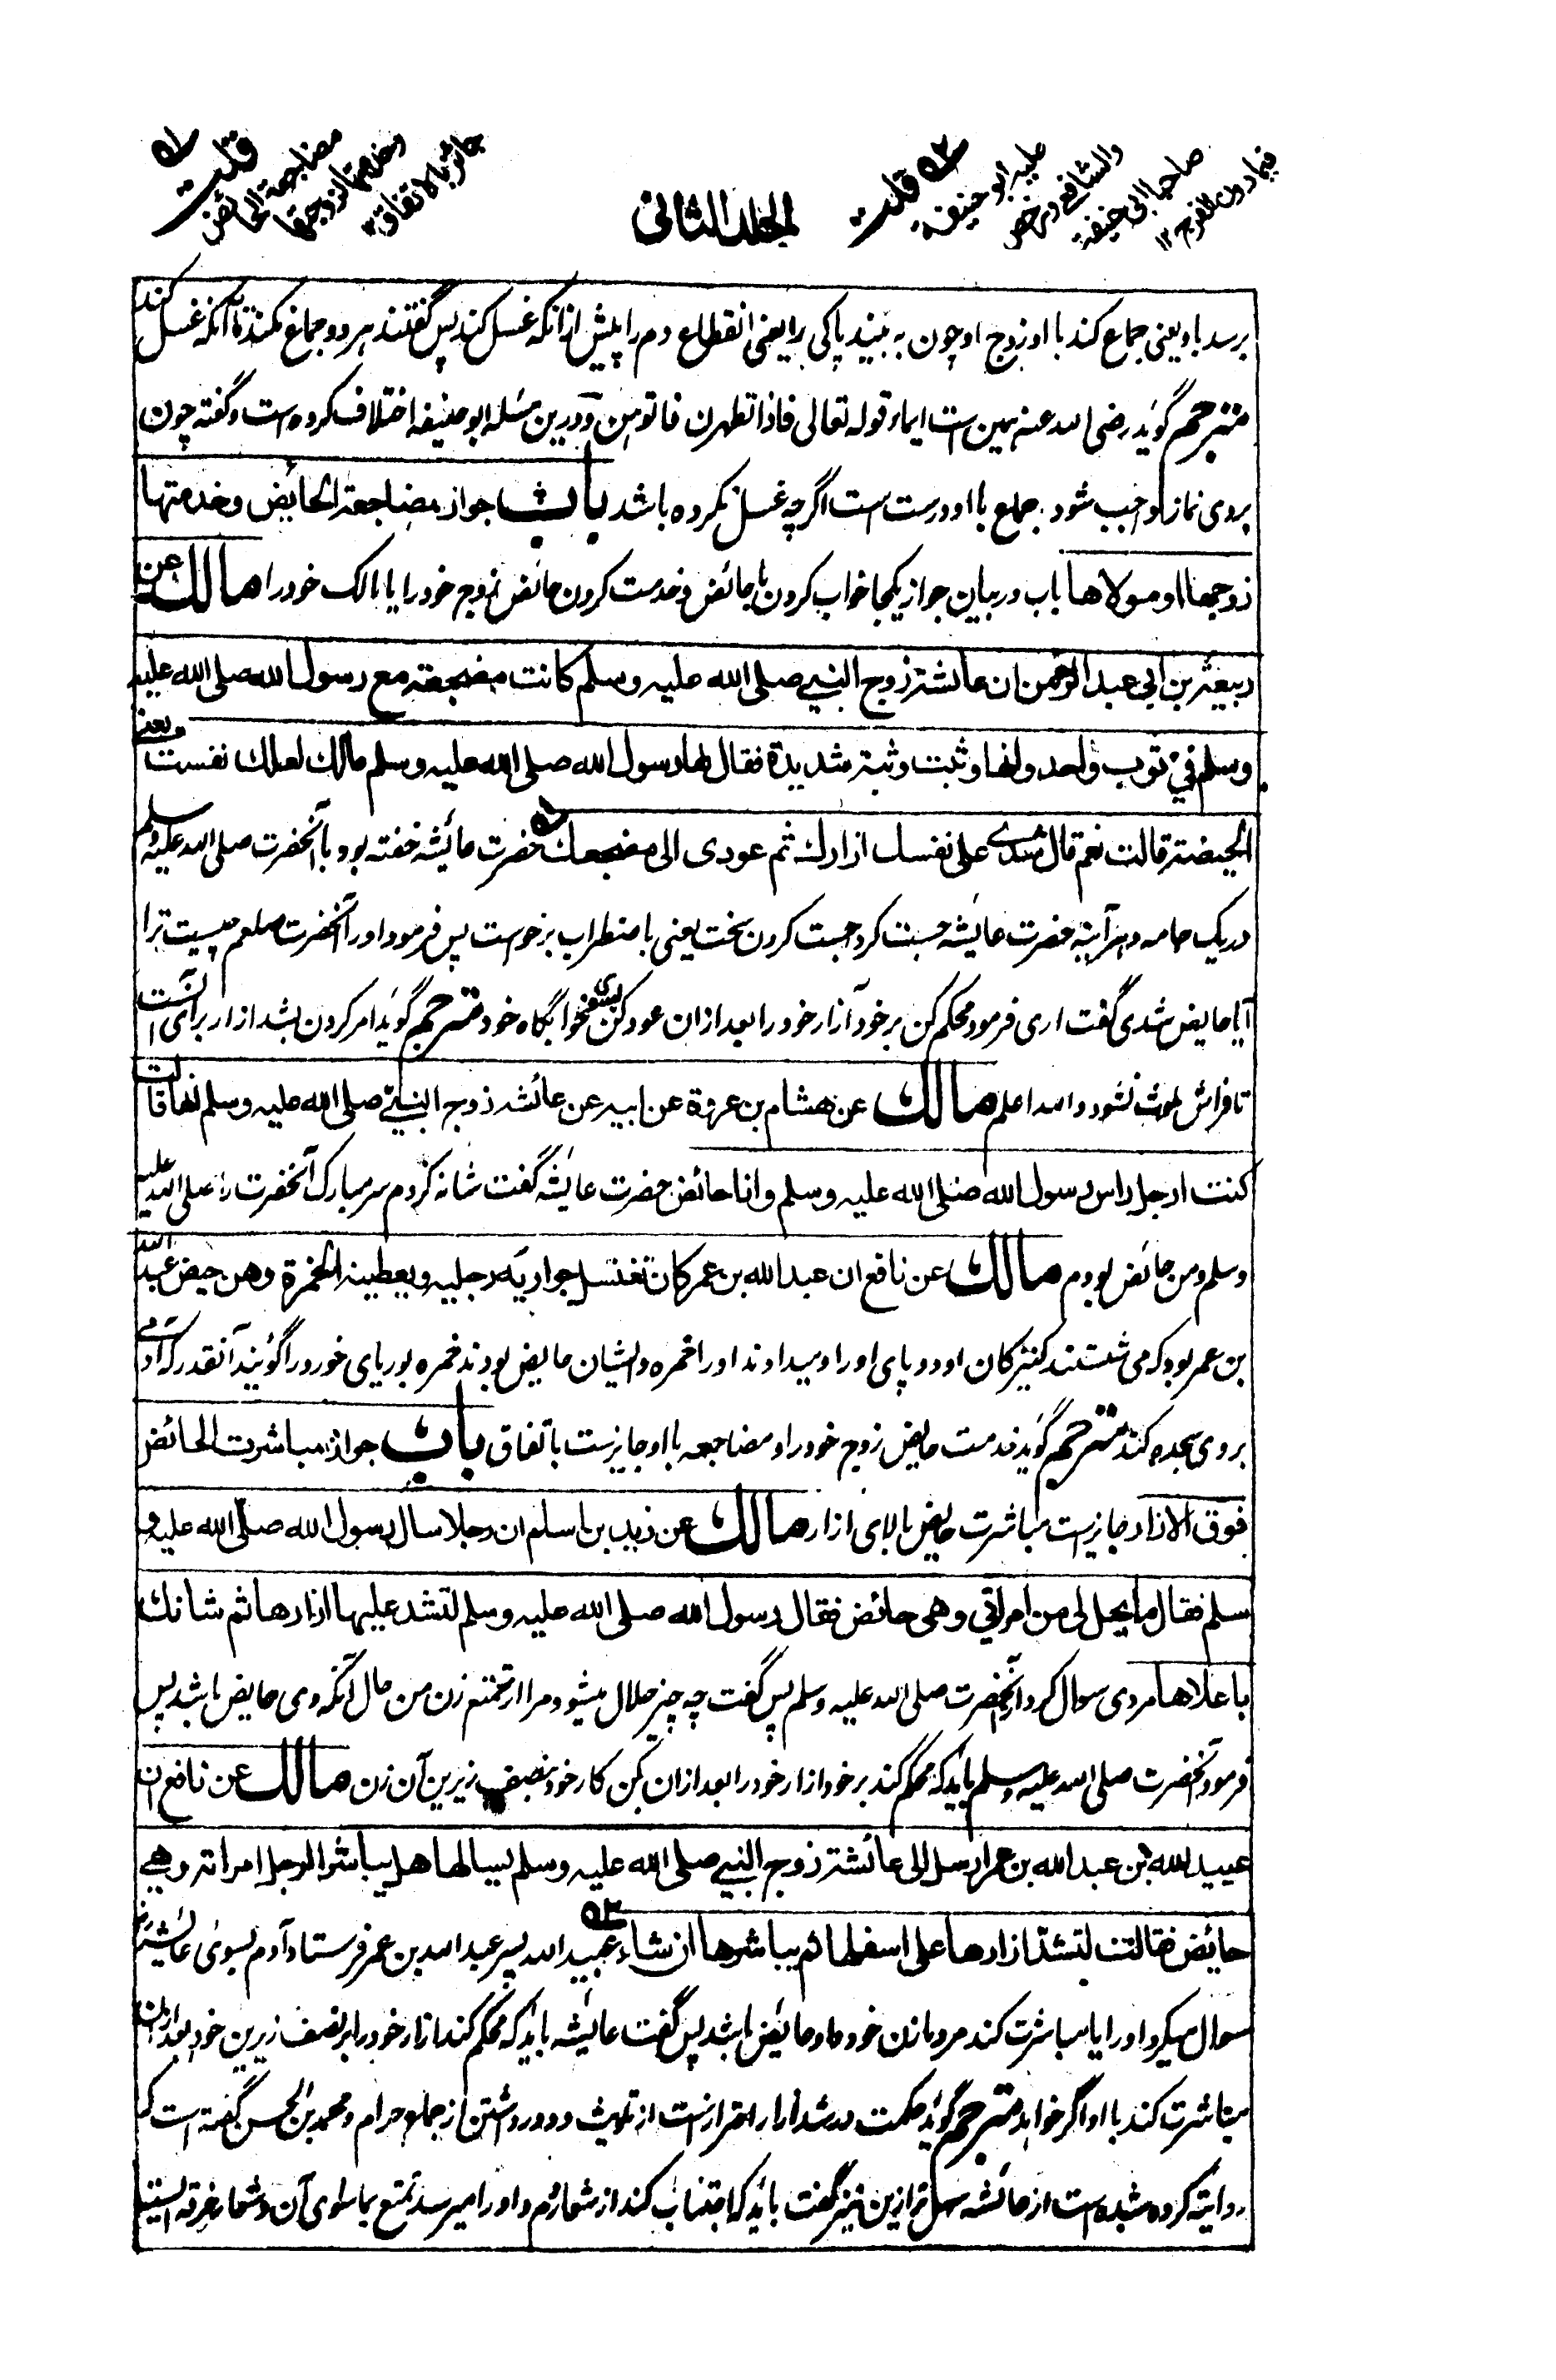 ۵۱ قلت
مضاجعة الحائض
وخدمتها لزوجها
جائز بالاتفاق ۱۲
الجلد الثانی
۵۲ قلت
علیه ابو حنیفة
والشافعی ورخص
صاحبا ابی حنیفة
فیما دون الفرج ۱۲
برسد باو یعنی جماع کند با او زوج او چون به بیند پاکی را یعنی انقطاع دم را پیش از انکه غسل کند پس گفتند هر دو جماع نکند تا آنکه غسل کند
مترجم گوید رضی الله عنه همین ست ایماء قوله تعالی فاذا تطهرن فاتوهن و درین مسئله ابو حنیفه اختلاف کرده ست و گفته چون
بروی نماز واجب شود جماع با او درست ست اگرچه غسل نکرده باشد باب جواز مضاجعة الحایض وخدمتها
زوجها او مولاها باب در بیان جواز یکجا خواب کردن با حائض و خدمت کردن حائض زوج خود را یا مالک خود را مالك عن
ربیعة بن ابی عبد الرحمن ان عائشة زوج النبی صلی الله علیه وسلم کانت مضجعة مع رسول الله صلی الله علیه
وسلم فی ثوب واحد وانها وثبت وثبة شدیدة فقال لها رسول الله صلی الله علیه وسلم مالك لعلك نفست یعنی
الحیضة قالت نعم قال شدی علی نفسك ازارك ثم عودی الی مضجعك ۵۱ حضرت عائیشه خفته بود با آنحضرت صلی الله علیه وسلم
در یک جامه و هر آینه حضرت عایشه جست کرد جست کردن سخت یعنی باضطراب برخوست پس فرمود او را آنحضرت صلعم چیست ترا
آیا حایض شدی گفت اری فرمود محکم کن بر خود آزار خود را بعد ازان عود کن بسوی خوابگاه خود مترجم گوید امر کردن بشد ازار برای آنست
تا فراش ملوث نشود والله اعلم مالك عن هشام بن عروة عن ابیه عن عائشه زوج النبی صلی الله علیه وسلم انها قالت
کنت ارجل راس رسول الله صلی الله علیه وسلم وانا حائض حضرت عایشه گفت شانه کردم سر مبارک آنحضرت را صلی الله علیه
وسلم و من حائض بودم مالك عن نافع ان عبد الله بن عمر کان تغتسل جواریه رجلیه ویعطینه الخمرة وهن حیض عبد الله
بن عمر بود که می شستند کنیزکان او دو پای او را و میدادند او را خمره و ایشان حایض بودند خمره بوریای خورد را گویند آنقدر که آدمی
بروی سجده کند مترجم گوید خدمت حایض زوج خود را و مضاجعه با او جایزست باتفاق باب جواز مباشرت الحائض
فوق الازار جایزست مباشرت حایض بالای ازار مالك عن زید بن اسلم ان رجلا سال رسول الله صلی الله علیه و
سلم فقال ما یحل لی من امراتی وهی حائض فقال رسول الله صلی الله علیه وسلم لتشد علیها ازارها ثم شانك
باعلاها مردی سوال کرد آنحضرت صلی الله علیه وسلم پس گفت چه چیز حلال میشود مرا از تمتع زن من حال آنکه وی حایض باشد پس
فرمود آنحضرت صلی الله علیه وسلم باید که محکم کند بر خود ازار خود را بعد ازان بکن کار خود بنصف زیرین آن زن مالك عن نافع ان
عبید الله بن عبد الله بن عمر ارسل الی عائشة زوج النبی صلی الله علیه وسلم یسالها هل یباشر الرجل امراته وهی
حائض فقالت لتشد ازارها علی اسفلها ثم یباشرها ان شاء ۵۲ عبید الله پسر عبد الله بن عمر فرستاد آدم بسوی عائشه
سوال میکرد او را ایا مباشرت کند مرد با زن خود و او حائض باشد پس گفت عایشه باید که محکم کند ازار خود را بر نصف زیرین خود بعد ازان
مباشرت کند با او اگر خواهد مترجم گوید حکمت در شد ازار احترازست از تلویث و دور داشتن از جماع حرام و محمد بن الحسن گفته است که
روایته کرده شده ست از عائشه سهل تر ازین نیز گفت باید که اجتناب کند از شعار دم و او را میرسد تمتع بماسوای آن و شعار خرقه ایست